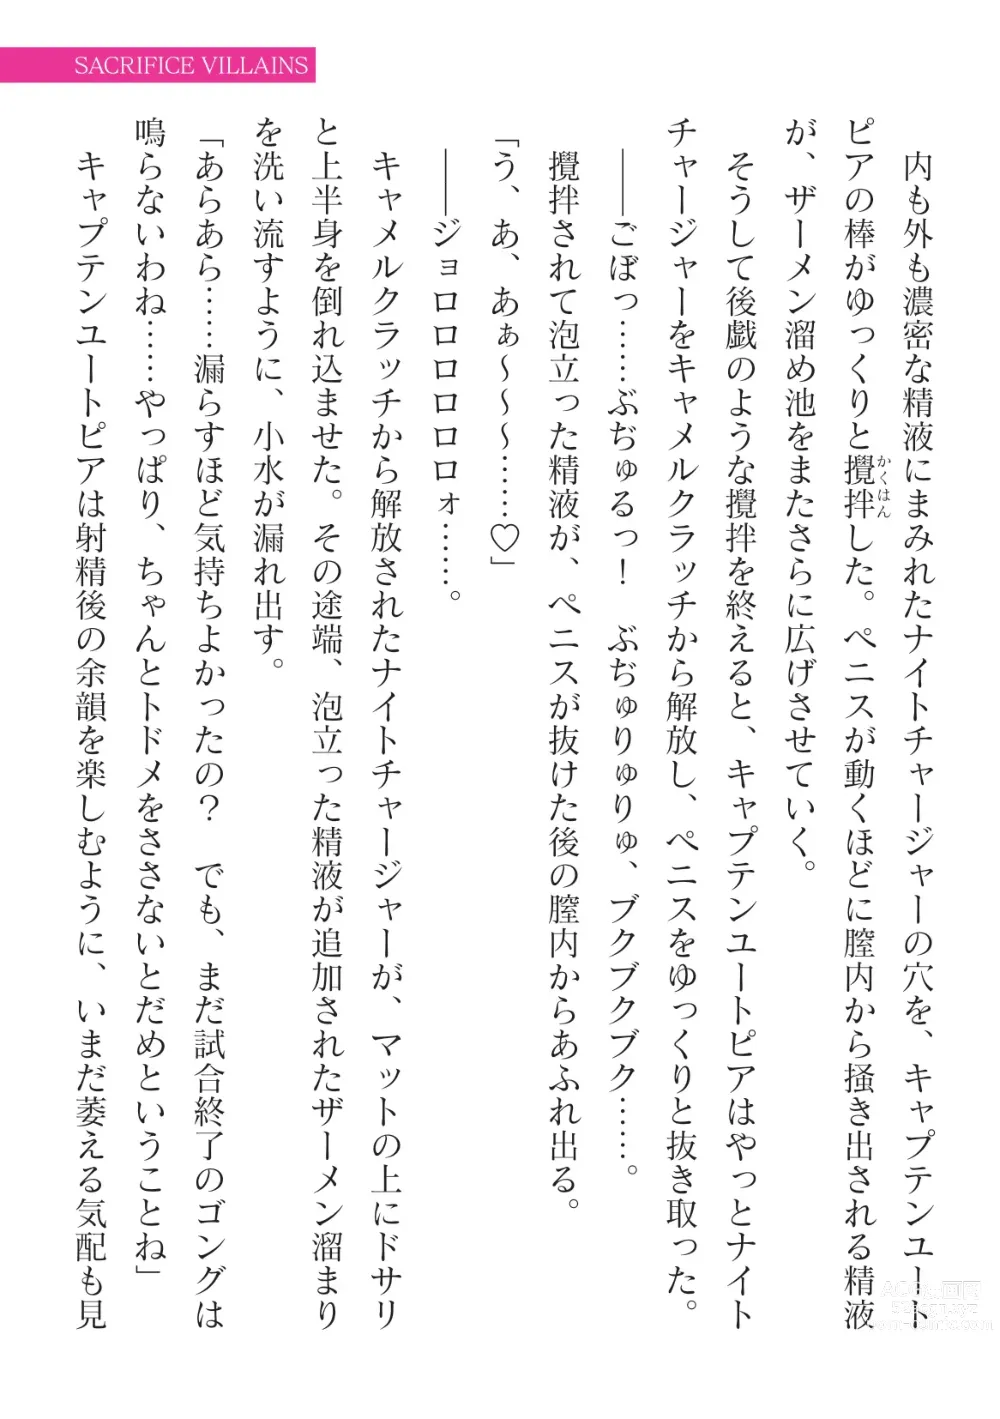 SACRIFICE VILLAINS
内も外も濃密な精液にまみれたナイトチャージャーの穴を、キャプテンユート
ピアの棒がゆっくりと攪拌した。ペニスが動くほどに膣内から掻き出される精液
かくはん
が、ザーメン溜め池をまたさらに広げさせていく。
そうして後戯のような攪拌を終えると、キャプテンユートピアはやっとナイト
チャージャーをキャメルクラッチから解放し、ペニスをゆっくりと抜き取った。
――ごぼっ……ぶぢゅるっ！　ぶぢゅりゅりゅ、ブクブクブク……。
攪拌されて泡立った精液が、ペニスが抜けた後の膣内からあふれ出る。
「う、あ、あぁ～～～……♡」
――ジョロロロロロロォ……。
キャメルクラッチから解放されたナイトチャージャーが、マットの上にドサリ
と上半身を倒れ込ませた。その途端、泡立った精液が追加されたザーメン溜まり
を洗い流すように、小水が漏れ出す。
「あらあら……漏らすほど気持ちよかったの？　でも、まだ試合終了のゴングは
鳴らないわね……やっぱり、ちゃんとトドメをささないとだめということね」
キャプテンユートピアは射精後の余韻を楽しむように、いまだ萎える気配も見